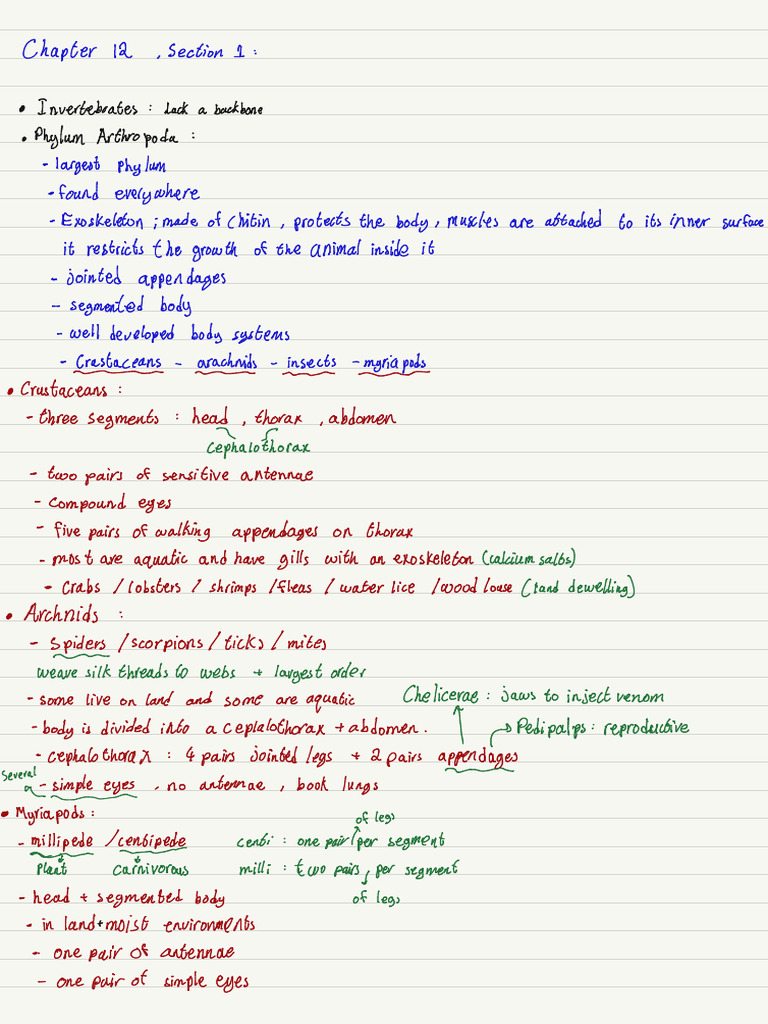 Chapter 12 , Section 1 :
• Invertebrates : Lack a backbone
• Phylum Arthropoda :
- largest phylum
- found everywhere
- Exoskeleton ; made of chitin , protects the body , muscles are attached to its inner surface
it restricts the growth of the animal inside it
- jointed appendages
- segmented body
- well developed body systems
- Crastaceans - arachnids - insects - myriapods
• Crustaceans :
- three segments : head , thorax , abdomen
cephalothorax
- two pairs of sensitive antennae
- compound eyes
- five pairs of walking appendages on thorax
- most are aquatic and have gills with an exoskeleton (calcium salts)
- crabs / lobsters / shrimps / fleas / water lice / wood louse (land dewelling)
• Archnids :
- Spiders / scorpions / ticks / mites
weave silk threads to webs + largest order
- some live on land and some are aquatic
Chelicerae : jaws to inject venom
- body is divided into a ceplalothorax + abdomen .
Pedipalps : reproductive
- cephalothorax : 4 pairs jointed legs + 2 pairs appendages
Several
- simple eyes , no antennae , book lungs
• Myriapods :
of legs
- millipede / centipede centi : one pair per segment
Plant carnivorous milli : two pairs per segment
- head + segmented body of legs
- in land + moist environments
- one pair of antennae
- one pair of simple eyes